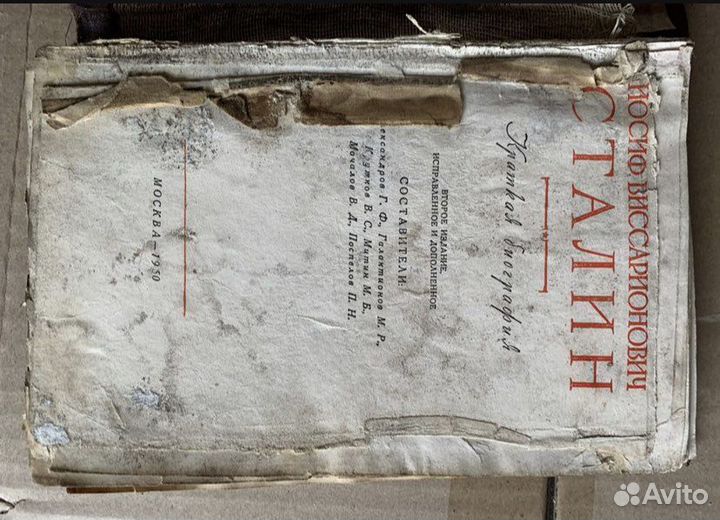 ИОСИФ ВИССАРИОНОВИЧ
СТАЛИН
Краткая биография
ВТОРОЕ ИЗДАНИЕ,
ИСПРАВЛЕННОЕ И ДОПОЛНЕННОЕ
СОСТАВИТЕЛИ:
лександров Г. Ф., Галактионов М. Р.,
Кружков В. С., Митин М. Б.,
Мочалов В. Д., Поспелов П. Н.
МОСКВА—1950
Avito